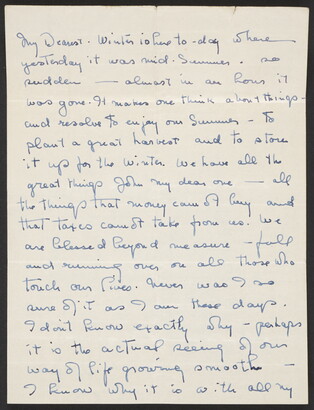 My Dearest - Winter is here to-day where
yesterday it was mid-Summer. so
sudden — almost in an hour it
was gone. It makes one think about things
and resolve to enjoy our Summer - to
plant a great harvest and to store
it up for the Winter. We have all the
great things John my dear one — all
the things that money cannot buy and
that taxes cannot take from us. We
are blessed beyond measure - full
and running over on all those who
touch our lives. Never was I so
sure of it as I am these days.
I don't know exactly why - perhaps
it is the actual seeing of our
way of life growing smoother -
I know why it is with all my